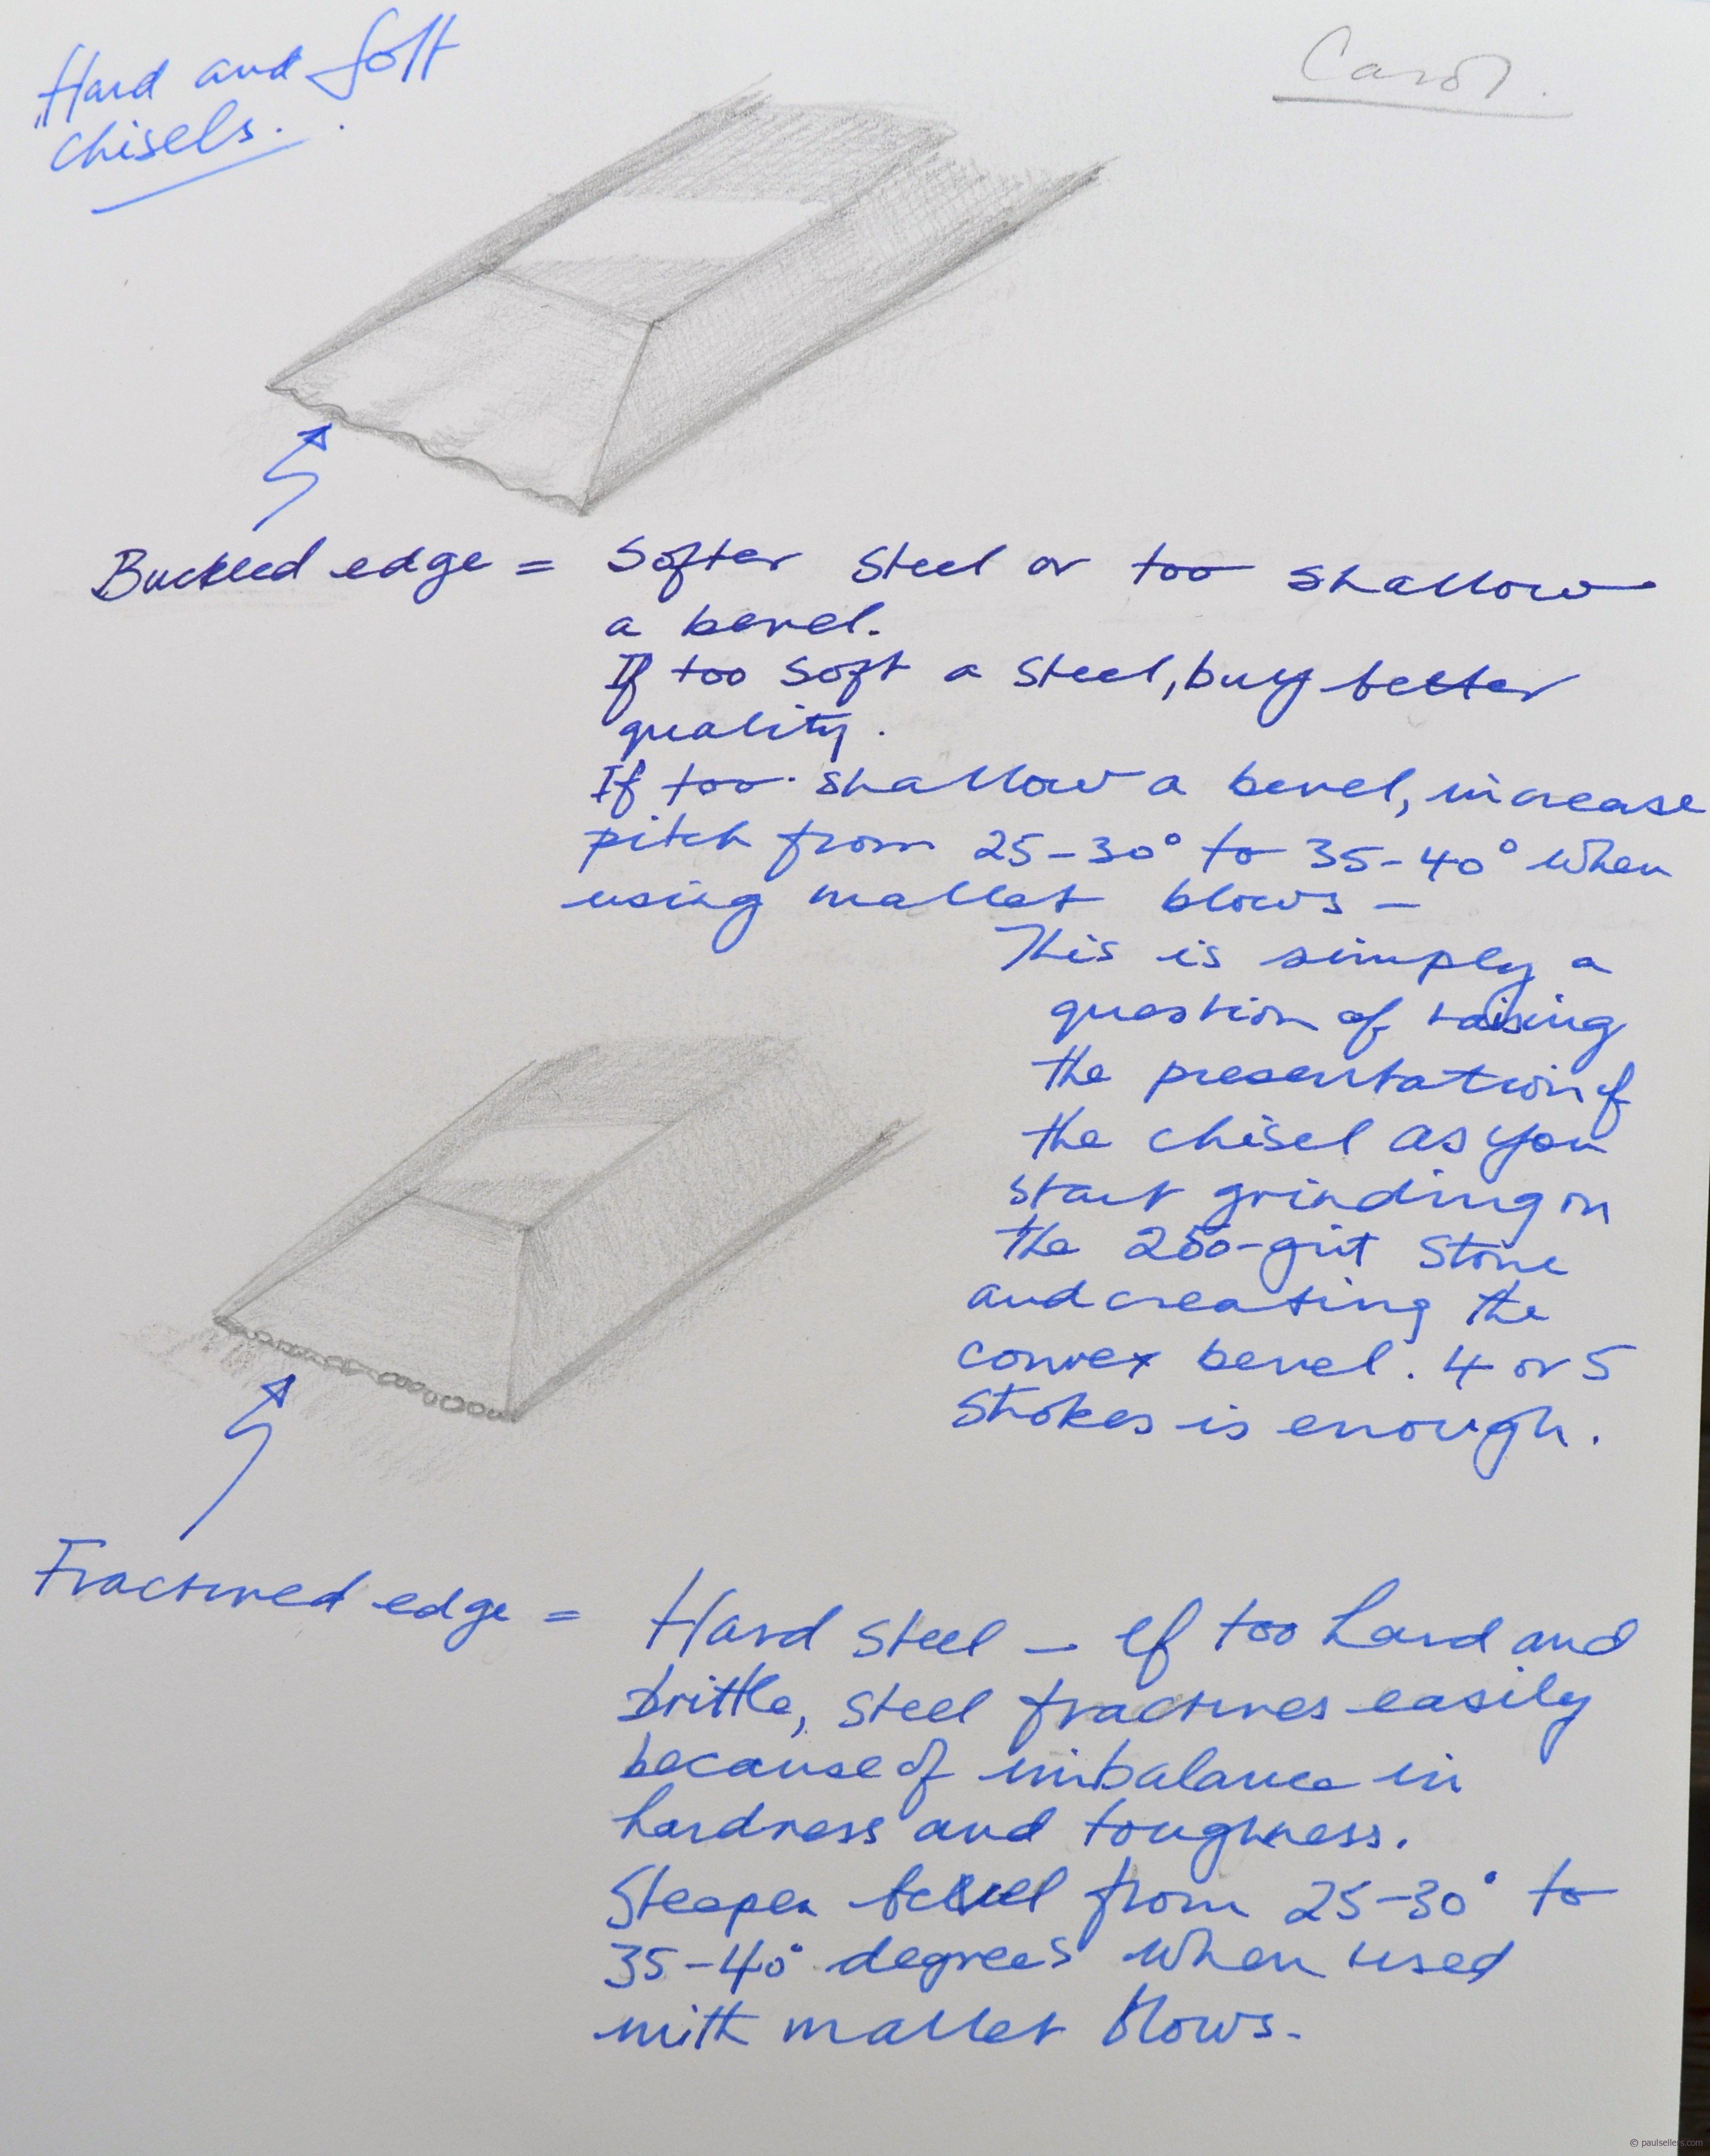 Hard and Soft
chisels.
Carol.
Buckled edge = Softer steel or too shallow
a bevel.
If too soft a steel, buy better
quality.
If too shallow a bevel, increase
pitch from 25-30° to 35-40° when
using mallet blows –
This is simply a
question of raising
the presentation of
the chisel as you
start grinding on
the 250-grit stone
and creating the
convex bevel. 4 or 5
strokes is enough.
Fractured edge = Hard steel – If too hard and
brittle, steel fractures easily
because of imbalance in
hardness and toughness.
Steepen bevel from 25-30° to
35-40° degrees when used
with mallet blows.
© paulsellers.com